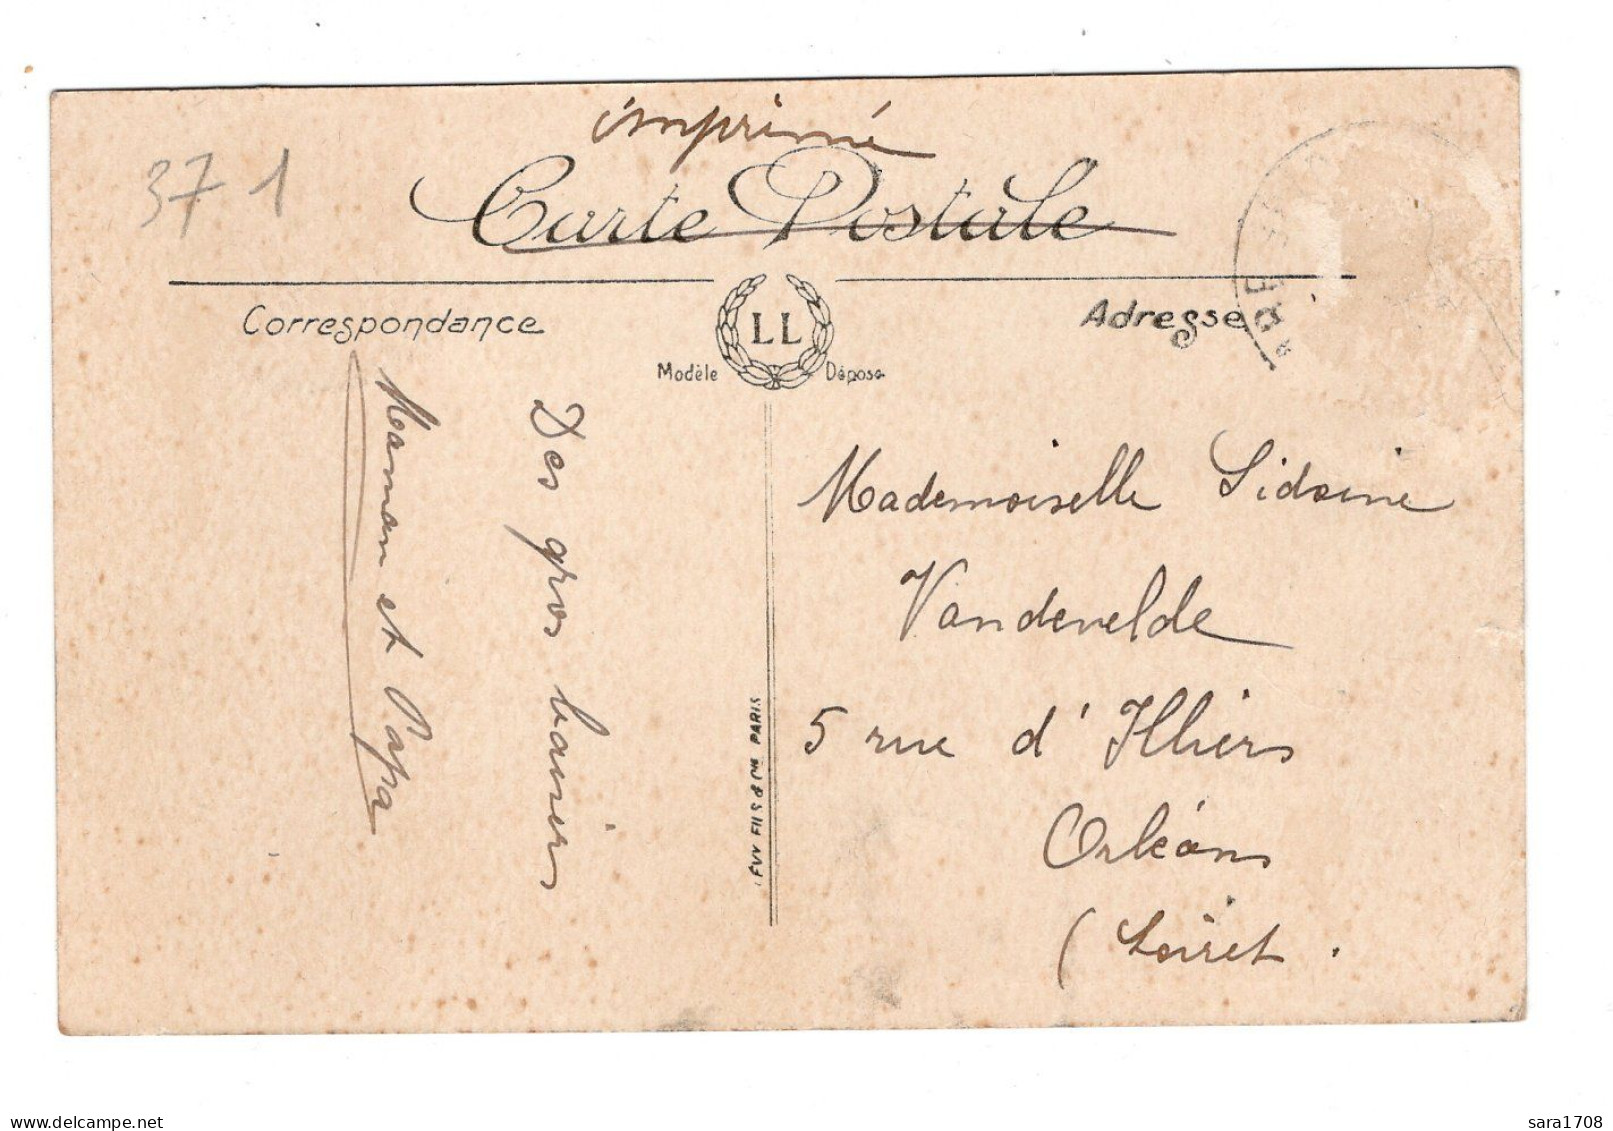 imprimé
371
Carte Postale
Correspondance
LL
Adresse
Modèle Déposé
Des gros baisers
Maman et Papa
LEVY FILS & Cie PARIS
Mademoiselle Sidoine
Vandevelde
5 rue d'Illiers
Orléans
(Loiret.
delcampe.net
sara1708